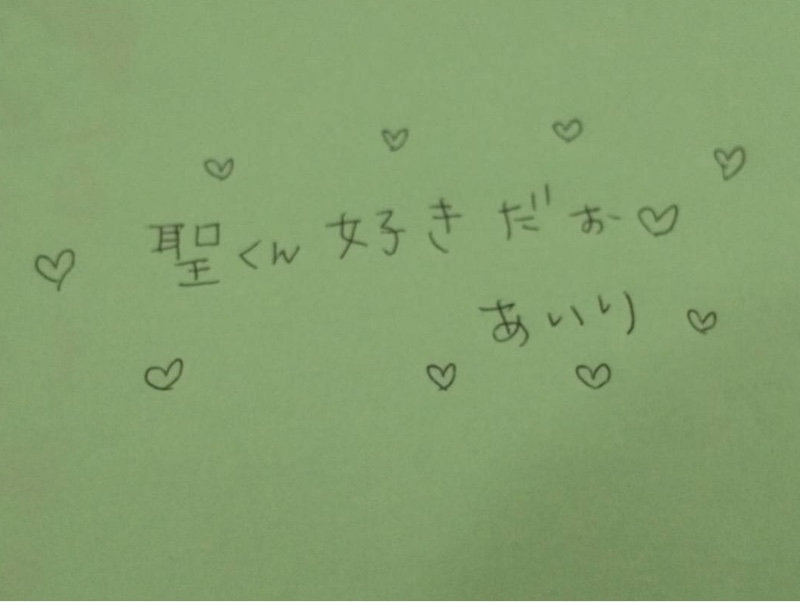 聖くん好きだぉ♡
あいり